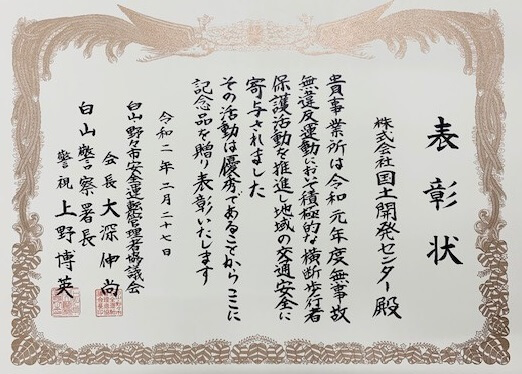 表彰状
株式会社国土開発センター殿
貴事業所は令和元年度無事故
無違反運動において積極的な横断歩行者
保護活動を推進し地域の交通安全に
寄与されました
その活動は優秀であることからここに
記念品を贈り表彰いたします
令和二年二月二十七日
白山野々市安全運転管理者協議会
会長 大深伸尚
白山警察署長
警視 上野博英